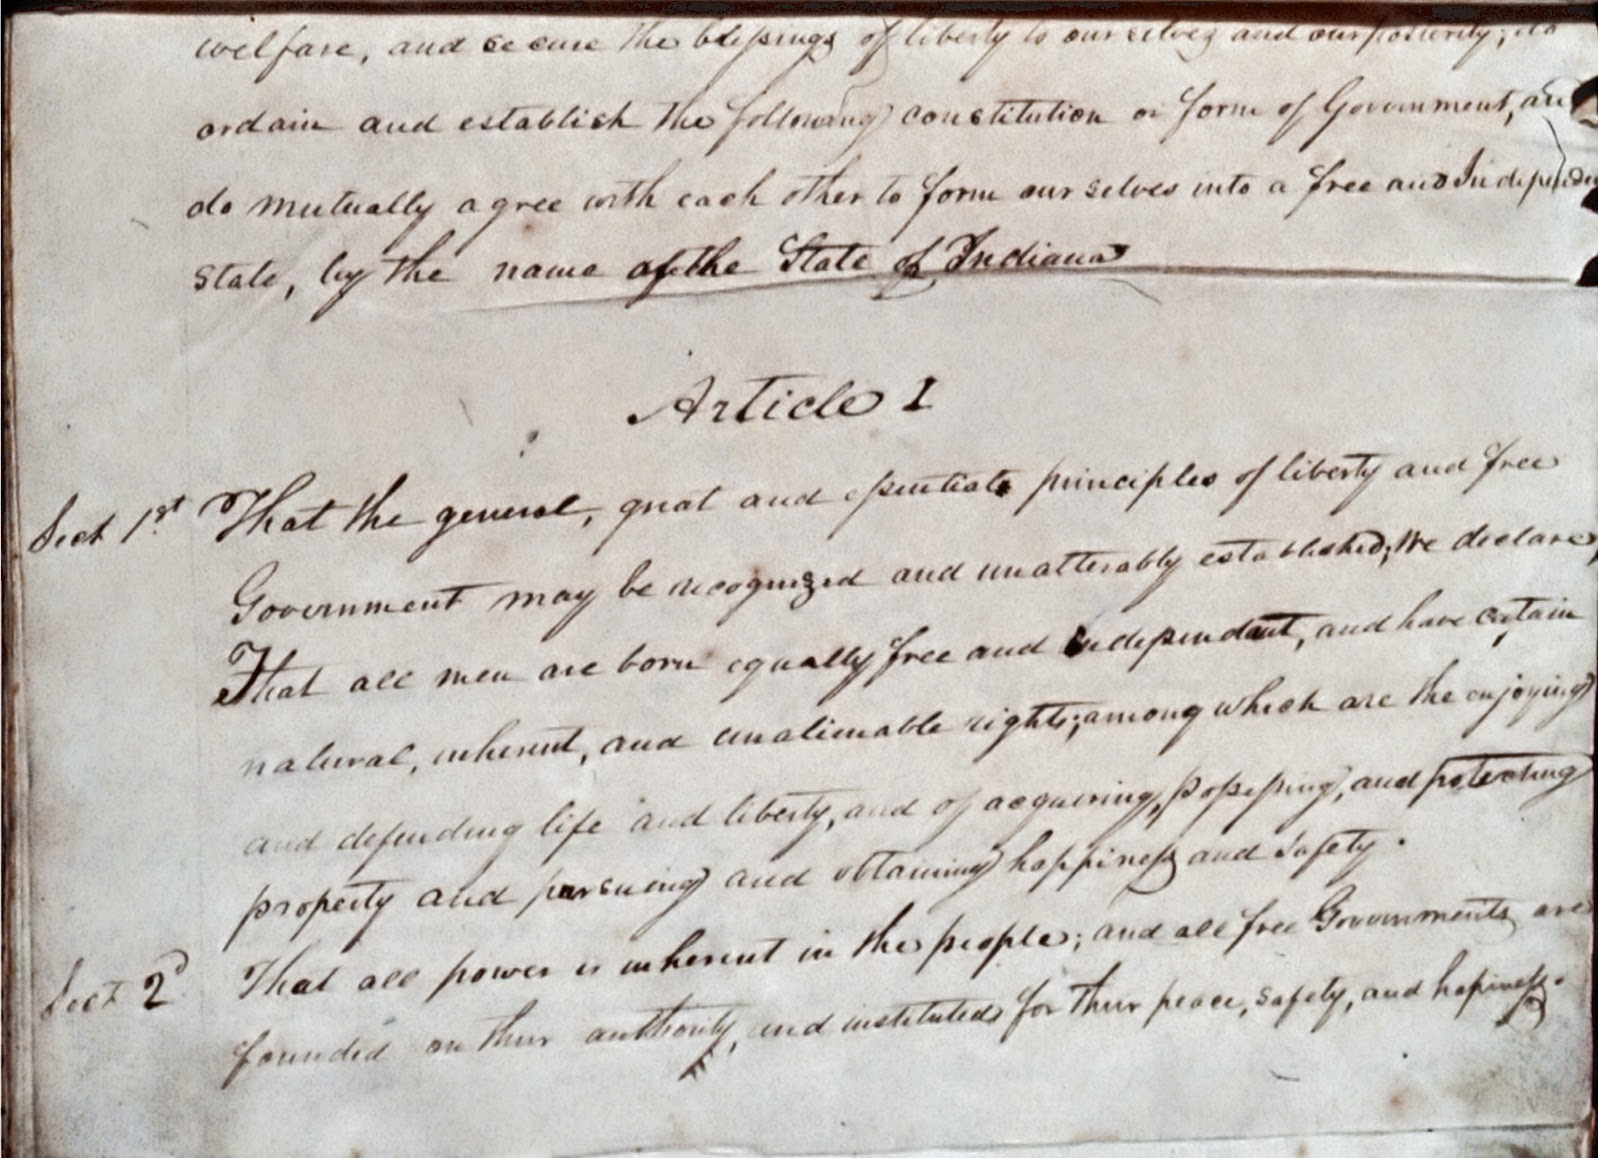 welfare, and secure the blessings of liberty to ourselves and our posterity; do
ordain and establish the following constitution or form of Government, and
do mutually agree with each other to form ourselves into a free and Independent
state, by the name of the State of Indiana
Article I
Sect 1st That the general, great and essential principles of liberty and free
Government may be recognized and unalterably established; We declare,
That all men are born equally free and independant, and have certain
natural, inherent, and unalienable rights; among which are the enjoying
and defending life and liberty, and of acquiring, possessing, and protecting
property and pursuing and obtaining happiness and safety.
Sect 2d That all power is inherent in the people; and all free Governments are
founded on their authority, and instituted for their peace, safety, and hapiness.